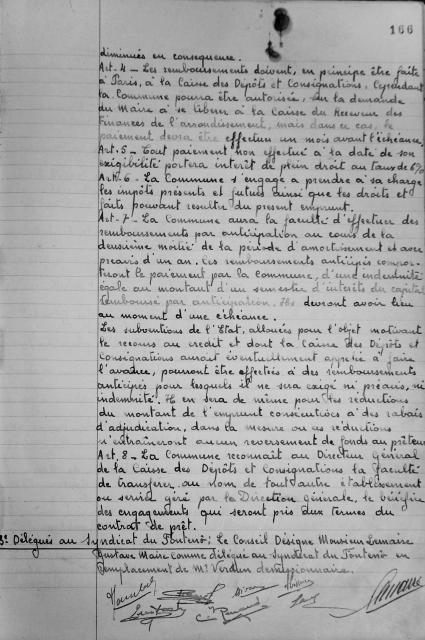 166
diminués en consequence.
Art. 4 _ Les remboursements doivent, en principe être faits
à Paris, à la Caisse des Dépôts et Consignations, Cependant
la Commune pourra être autorisée, sur la demande
du Maire à se libérer à la Caisse du Receveur des
Finances de l'arrondissement, mais dans ce cas, le
paiement devra être effectué un mois avant l'échéance.
Art. 5 _ Tout paiement non effectué à la date de son
exigibilité portera intérêt de plein droit au taux de 6%
Art. 6 _ La Commune s'engage à prendre à sa charge
les impôts présents et futurs ainsi que les droits et
frais pouvant resulter du present emprunt.
Art. 7 _ La Commune aura la faculté d'effectuer des
remboursements par anticipation au cours de la
deuxième moitié de la période d'amortissement et avec
preavis d'un an. Ces remboursements anticipés compor-
teront le paiement par la commune, d'une indemnité
égale au montant d'un semestre d'intérêts du capital
remboursé par anticipation. Ils devront avoir lieu
au moment d'une échéance.
Les subventions de l'Etat, allouées pour l'objet motivant
le recours au credit et dont la Caisse des Dépôts et
Consignations aurait éventuellement appelée à faire
l'avance, pourront être affectées à des remboursements
anticipés pour lesquels il ne sera exigé ni préavis, ni
indemnité. Il en sera de même pour les réductions
du montant de l'emprunt consécutives à des rabais
d'adjudication, dans la mesure où ces réductions
n'entraîneront aucun reversement de fonds au prêteur
Art. 8 _ La Commune reconnaît au Directeur Général
de la Caisse des Dépôts et Consignations la faculté
de transférer au nom de tout autre établissement
ou service géré par la Direction générale, le bénéfice
des engagements qui seront pris aux termes du
contrat de prêt.
3° Délégués au Syndicat du Fontenō: Le Conseil Désigne Monsieur Lemaire
Gustave Maire comme délégué au Syndicat du Fontenō en
remplacement de Mr Verdun demissionnaire.